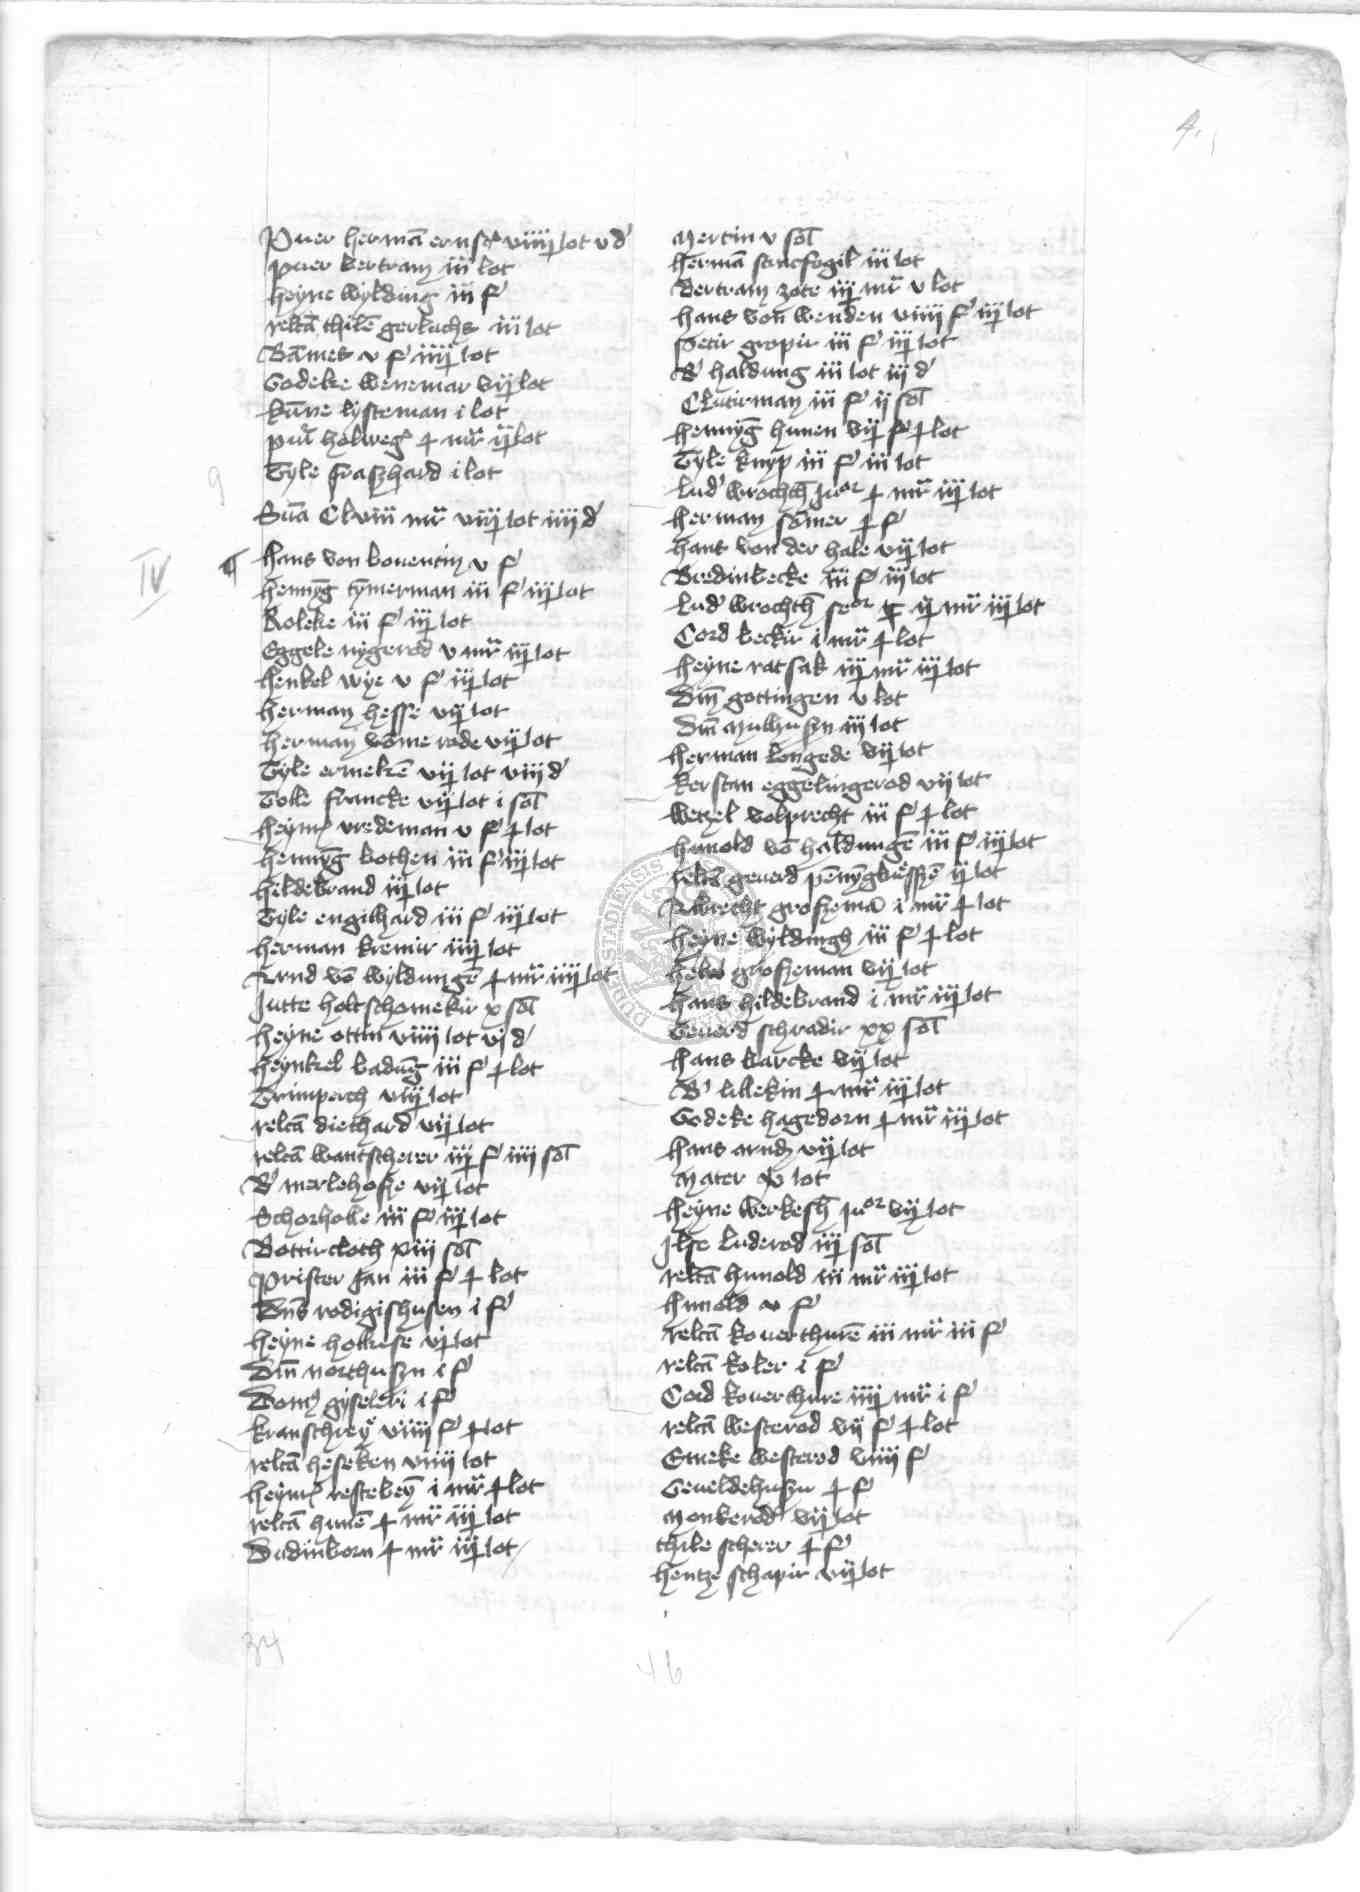 4
Puer herman ernst viiij lot v d
puer bertram iii lot
heyne wylding iii f
relcta thile gerlachs iii lot
Bames v f iiij lot
Godeke wenemar vij lot
kune lysteman i lot
holweg mr ij lot
Tyle fraszhard i lot
Sua Clviii mr viij lot iiij d
IV
hans von bouentin v f
hennyg tymerman iii f iij lot
Roleke iii f iij lot
Eggele nygerod v mr iij lot
henkel wye v f iij lot
herman hesse vij lot
herman vome rode vij lot
Tyle ermeken vij lot viij d
Tolle francke vij lot i sol
heyne vredeman v f lot
hennyg bothen iii f iij lot
hildebrand iij lot
Tyle engilhard iii f iij lot
herman kremir iiij lot
Arnd vo wyldungen mr iiij lot
Jutte holtschomekir x sol
heyne ottin viiij lot vj d
heynkel badung iii f lot
Trimperch vij lot
relcta diethard vij lot
relcta wantscherer iij f iiij sol
B merlehosze vij lot
Schorholle iii f iij lot
Bottircloth xiij sol
Prister Jan iii f lot
Dns rodigishusen i f
heyne holtuse vij lot
Dm northuszn i f
gyseleri i f
kranschrey viiij f lot
relcta heseken viiij lot
heyne restebey i mr lot
relcta hunen mr iij lot
Budinborn mr iij lot
34
Mertin v sol
herman stucfogil iii lot
Bertram zote iij mr v lot
hans von wenden viiij f iij lot
Petir gropir iii f iij lot
B haldung iii lot iij d
Cluttirman iii f ij sol
hennyg hunen vij f lot
Tyle knyp iii f iii lot
Lud wrochth Juor mr iij lot
herman somer f
hans von der hale vij lot
Bredinbecke iii f iij lot
Lud wrochth seor ij mr iij lot
Cord beckir i mr lot
heyne ratsak iij mr iij lot
Dm gottingen v lot
Dm Mulhuszn iij lot
herman longede vij lot
kerstan eggelingerod vij lot
Wetzel volprecht iii f lot
hunold vo haldungen iii f iij lot
relcta geuerd ij lot
Albrecht groszeman i mr lot
heyne wyldingh iii f lot
groszeman vij lot
hans hildebrand i mr iij lot
Geuerd schradir xx sol
hans barcke vij lot
B lillekin mr iij lot
Godeke hagedorn mr iij lot
hans arndz vij lot
Mater lot
heyne werkesh Juor vij lot
Jlse luderod iij sol
relcta hunold iii mr iij lot
hunold v f
relcta kouerthuren iii mr iii f
relcta koler i f
Cord kouerthure iiij mr i f
relcta westerod vij f lot
Emeke westerod viiij f
Geueldehuszn f
Monkerod vij lot
thile scherer f
hentze schapir vij lot
46